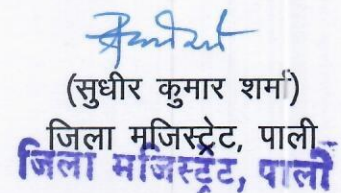 (सुधीर कुमार शर्मा)
जिला मजिस्ट्रेट, पाली
जिला मजिस्ट्रेट, पाली